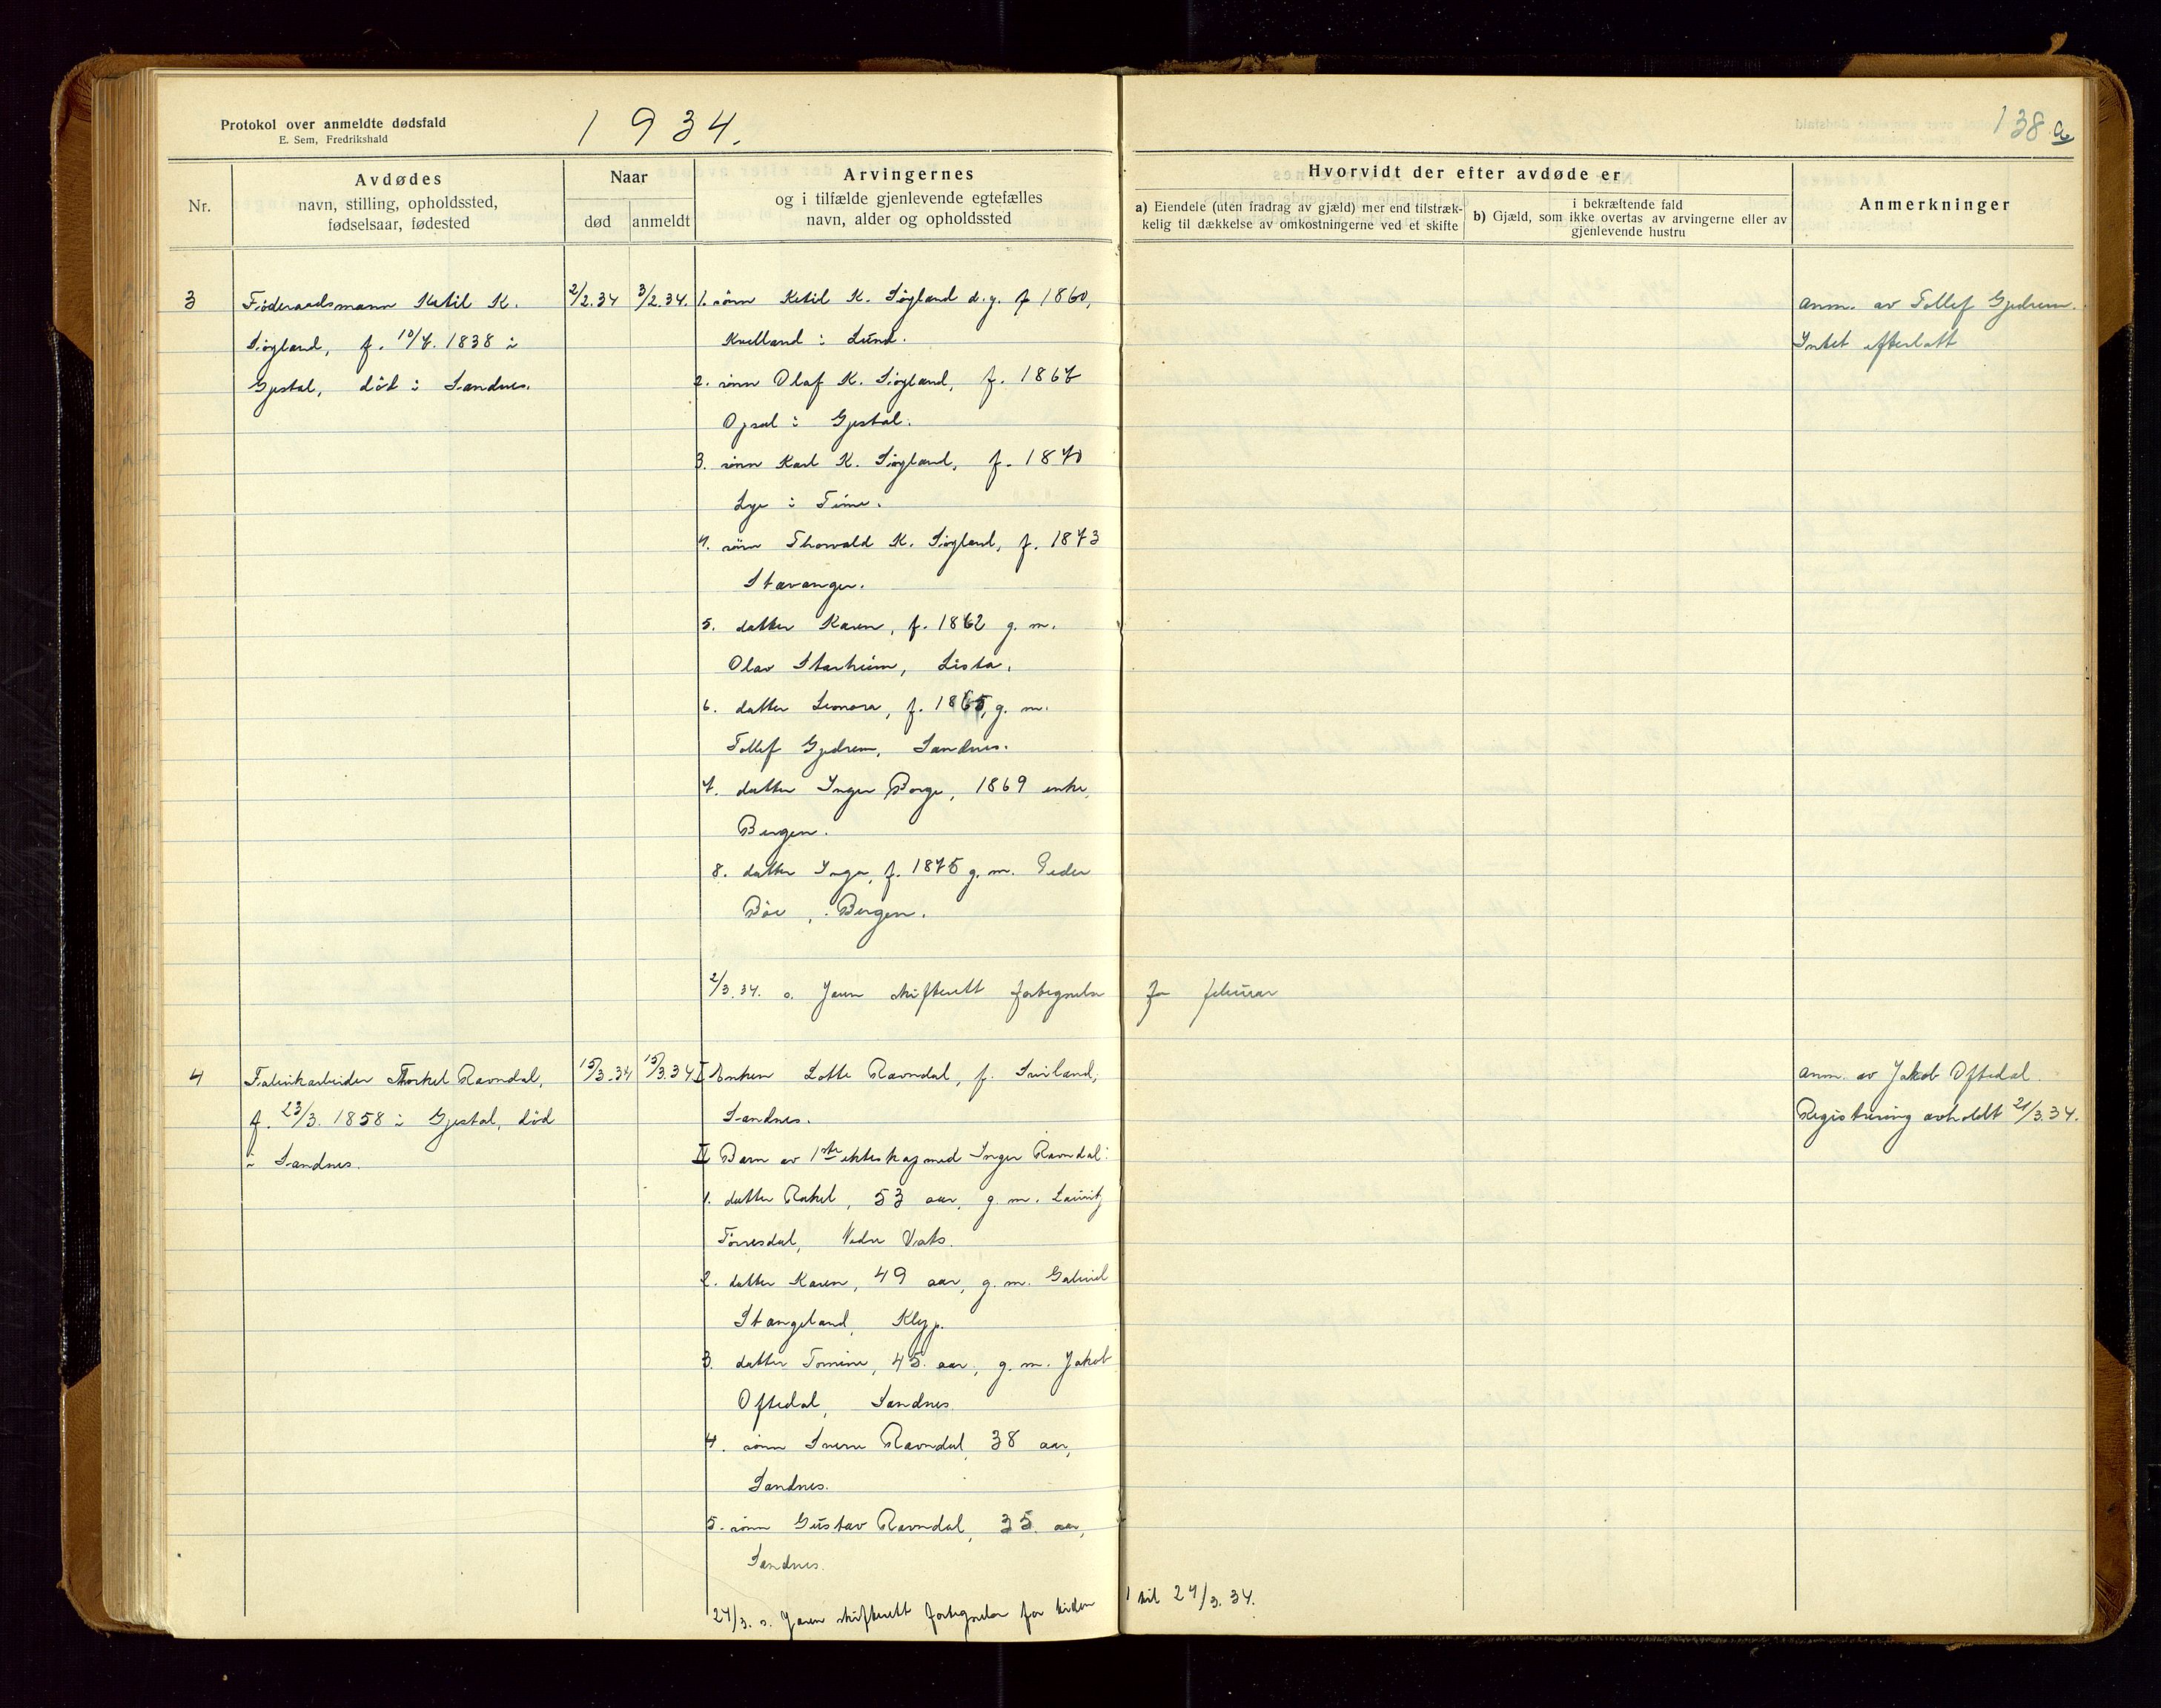 Protokol over anmeldte dødsfald
E. Sem, Fredrikshald
1934.
138 a
Nr.
Avdødes
navn, stilling, opholdssted,
fødselsaar, fødested
Naar
død
anmeldt
Arvingernes
og i tilfælde gjenlevende egtefælles
navn, alder og opholdssted
Hvorvidt der efter avdøde er
a) Eiendele (uten fradrag av gjæld) mer end tilstræk-
kelig til dækkelse av omkostningerne ved et skifte
i bekræftende fald
b) Gjæld, som ikke overtas av arvingerne eller av
gjenlevende hustru
Anmerkninger
3
Føderaadsmann Ketil K.
Sögland, f. 10/7. 1838 i
Gjestal, död i Sandnes.
2/2.34
3/2.34.
1. sönn Ketil K. Sögland d.y. f 1860,
Kvelland i Lund.
2. sönn Olaf K. Sögland, f. 1867
Opsal i Gjestal.
3. sönn Karl K. Sögland, f. 1870
Lye i Time.
4. sönn Thorvald K. Sögland, f. 1873
Stavanger.
5. datter Karen, f. 1862 g. m.
Olav Starheim, Lista.
6. datter Leonora, f. 1865, g. m.
Tollef Gjedrem, Sandnes.
7. datter Inger Borge, 1869 enke,
Bergen.
8. datter Inga, f. 1875 g. m. Peder
Böe, Bergen.
anm. av Tollef Gjedrem.
Intet efterlatt
2/3.34. s. Jæren skifterett fortegnelse for februar
4
Fabrikarbeider Thorkel Ravndal,
f. 23/3. 1858 i Gjestal, död
i Sandnes.
15/3.34
15/3.34
I Enken Lotte Ravndal, f. Sviland,
Sandnes.
II Barn av 1ste ekteskap med Inger Ravndal:
1. datter Rakel, 53 aar, g. m. Lauritz
Törresdal, Nedre Vats.
2. datter Karen, 49 aar, g. m. Gabriel
Stangeland, Klepp.
3. datter Tomine, 45 aar, g. m. Jakob
Oftedal, Sandnes.
4. sönn Sverre Ravndal, 38 aar,
Sandnes.
5. sönn Gustav Ravndal, 35 aar,
Sandnes.
anm. av Jakob Oftedal.
Registrering avholdt 21/3.34.
24/3. s. Jæren skifterett fortegnelse for tiden 1 til 24/3. 34.